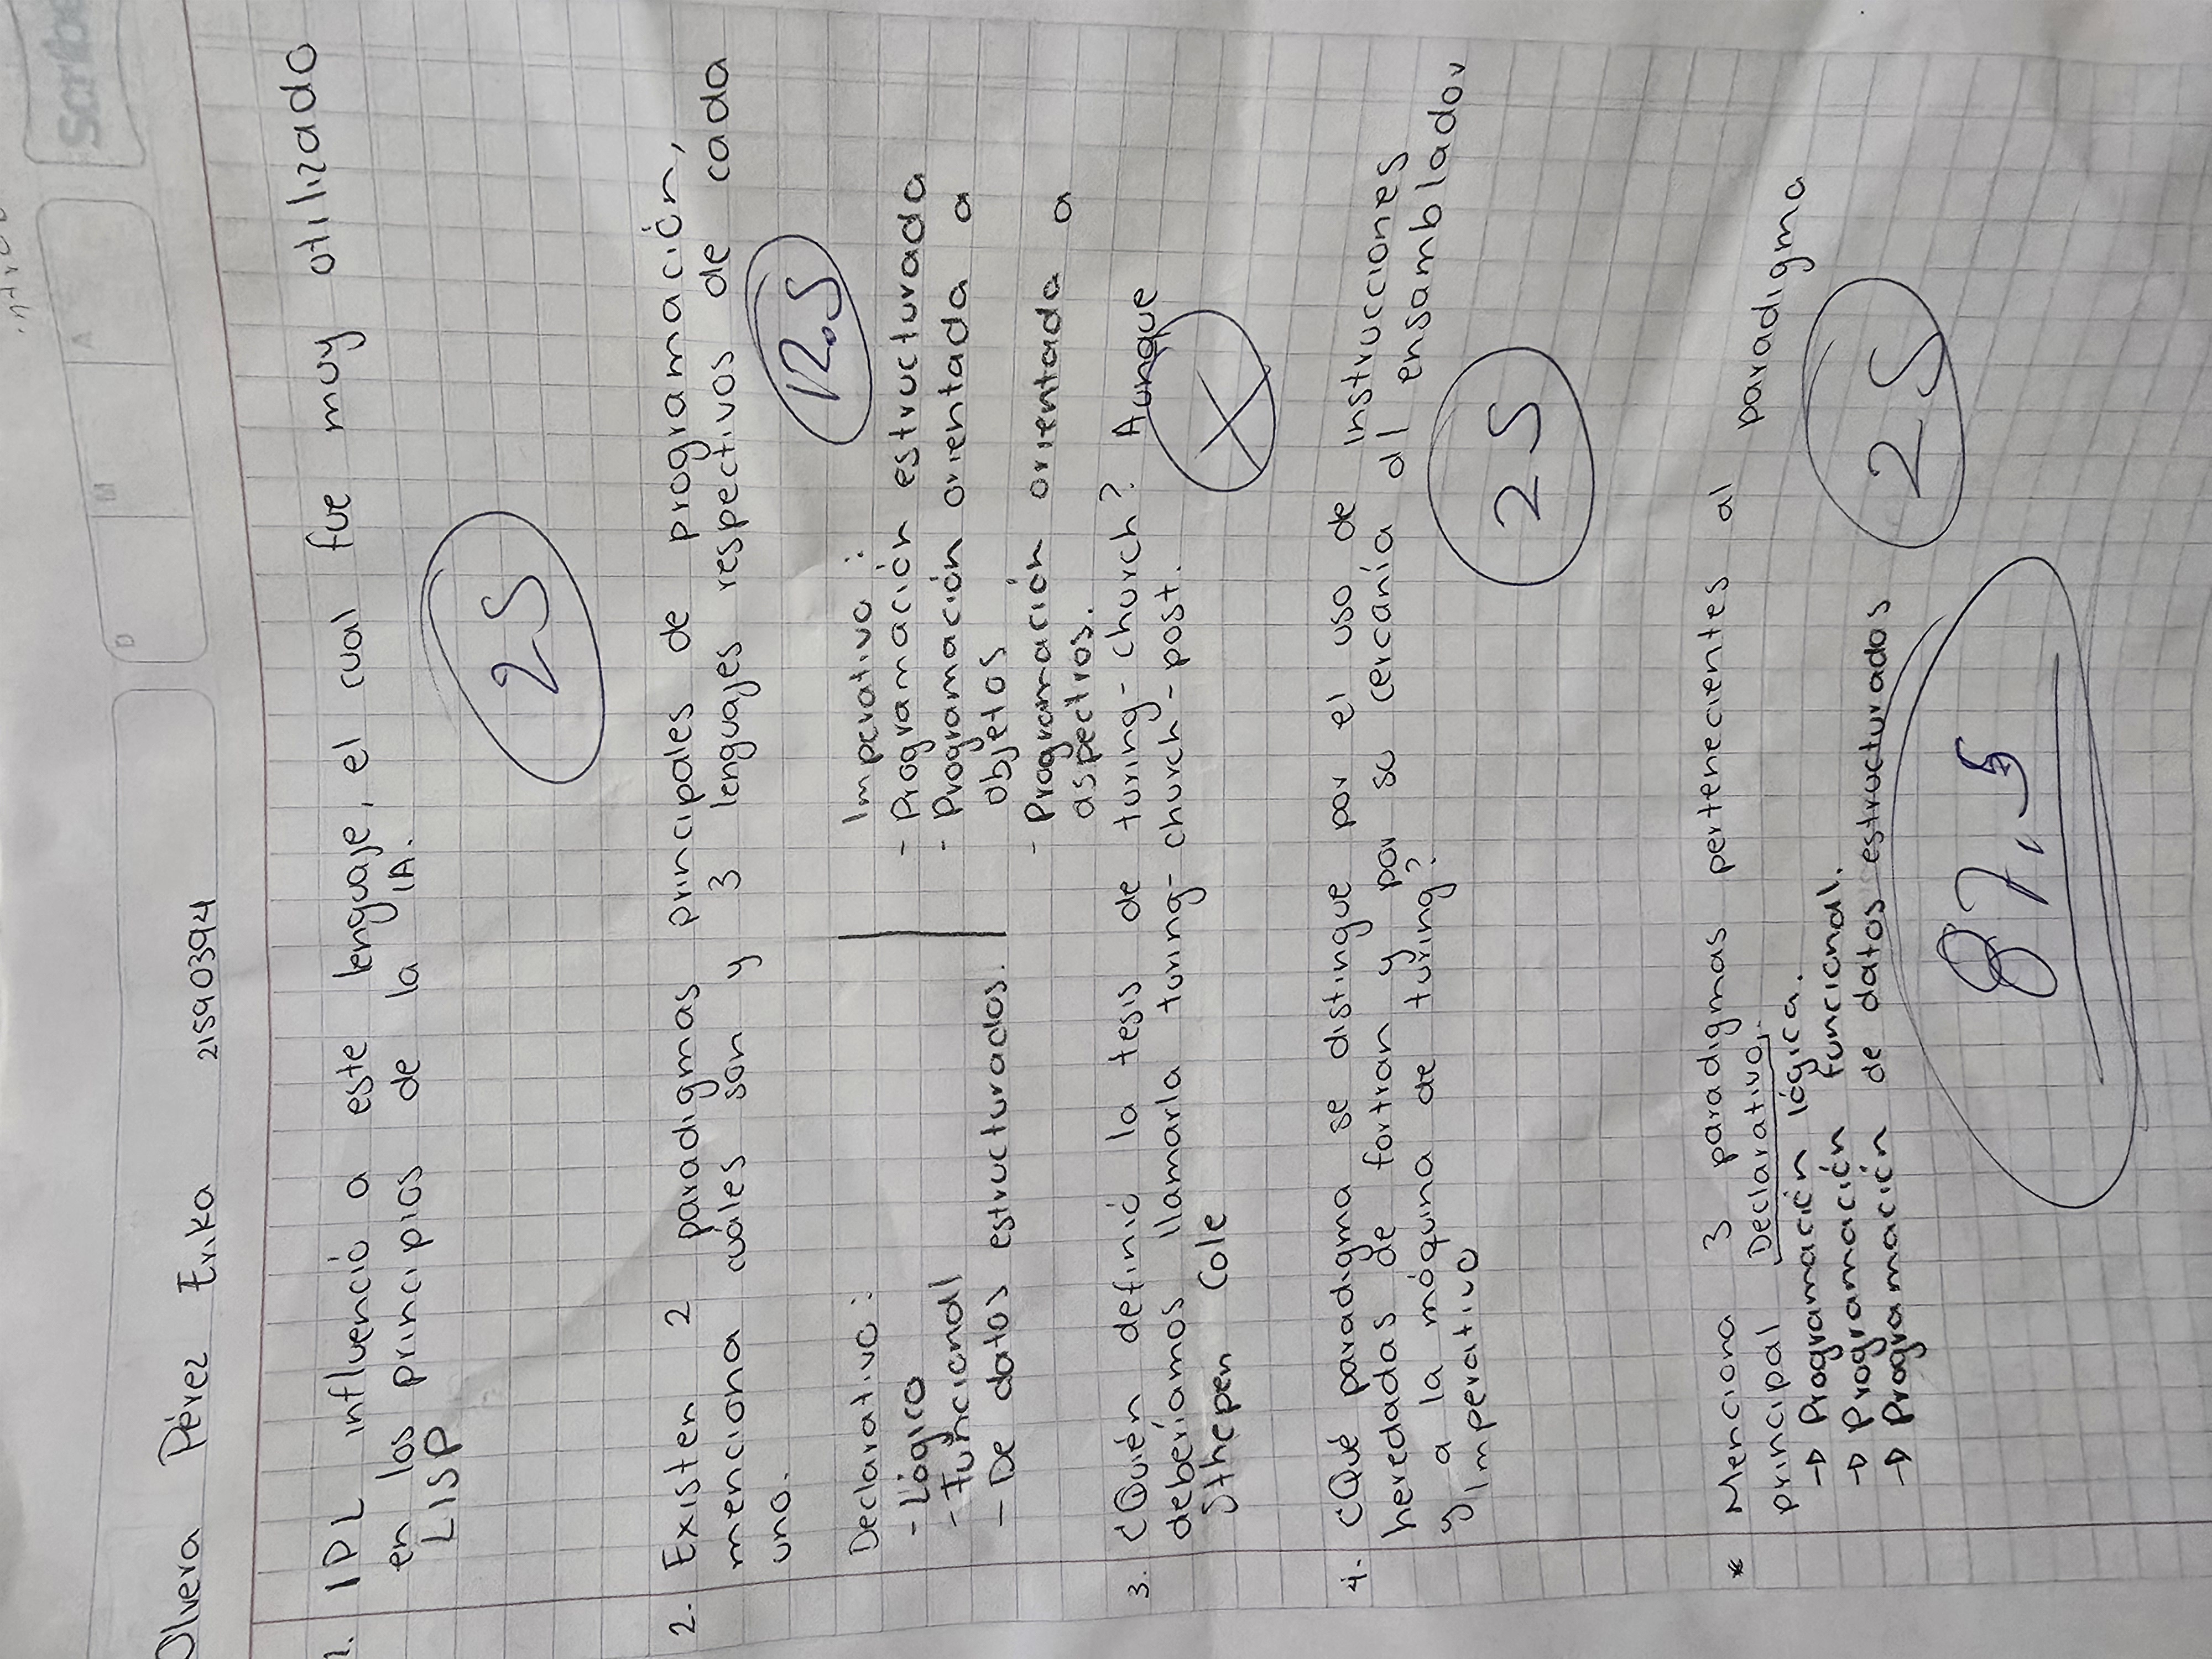 Scribe
D M A
Olvera Pérez Erika 21590394
1. IPL influenció a este lenguaje, el cual fue muy utilizado
en los principios de la IA.
LISP
25
2. Existen 2 paradigmas principales de programación,
menciona cuáles son y 3 lenguajes respectivos de cada
uno.
12.5
Declarativo:
- Lógico
- Funcional
- De datos estructurados.
Imperativo:
- Programación estructurada
- Programación orientada a
objetos
- Programación orientada a
aspectros.
3. ¿Quién definió la tesis de turing-church? Aunque
deberíamos llamarla turing-church-post.
Sthepen Cole
X
4. ¿Qué paradigma se distingue por el uso de instrucciones
heredadas de fortran y por su cercanía al ensamblador
y a la máquina de turing?
Imperativo
25
* Menciona 3 paradigmas pertenecientes al paradigma
principal Declarativo.
→ Programación lógica.
→ Programación funcional.
→ Programación de datos estructurados
25
87.5